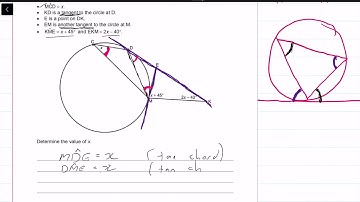 • MĈD = x
• KD is a tangent to the circle at D.
• E is a point on DK.
• EM is another tangent to the circle at M.
• KME = x + 45° and EKM = 2x – 40°.
C
D
E
x
M
x + 45°
2x – 40°
K
Determine the value of x
MD̂E = x (tan chord)
DM̂E = x (tan ch